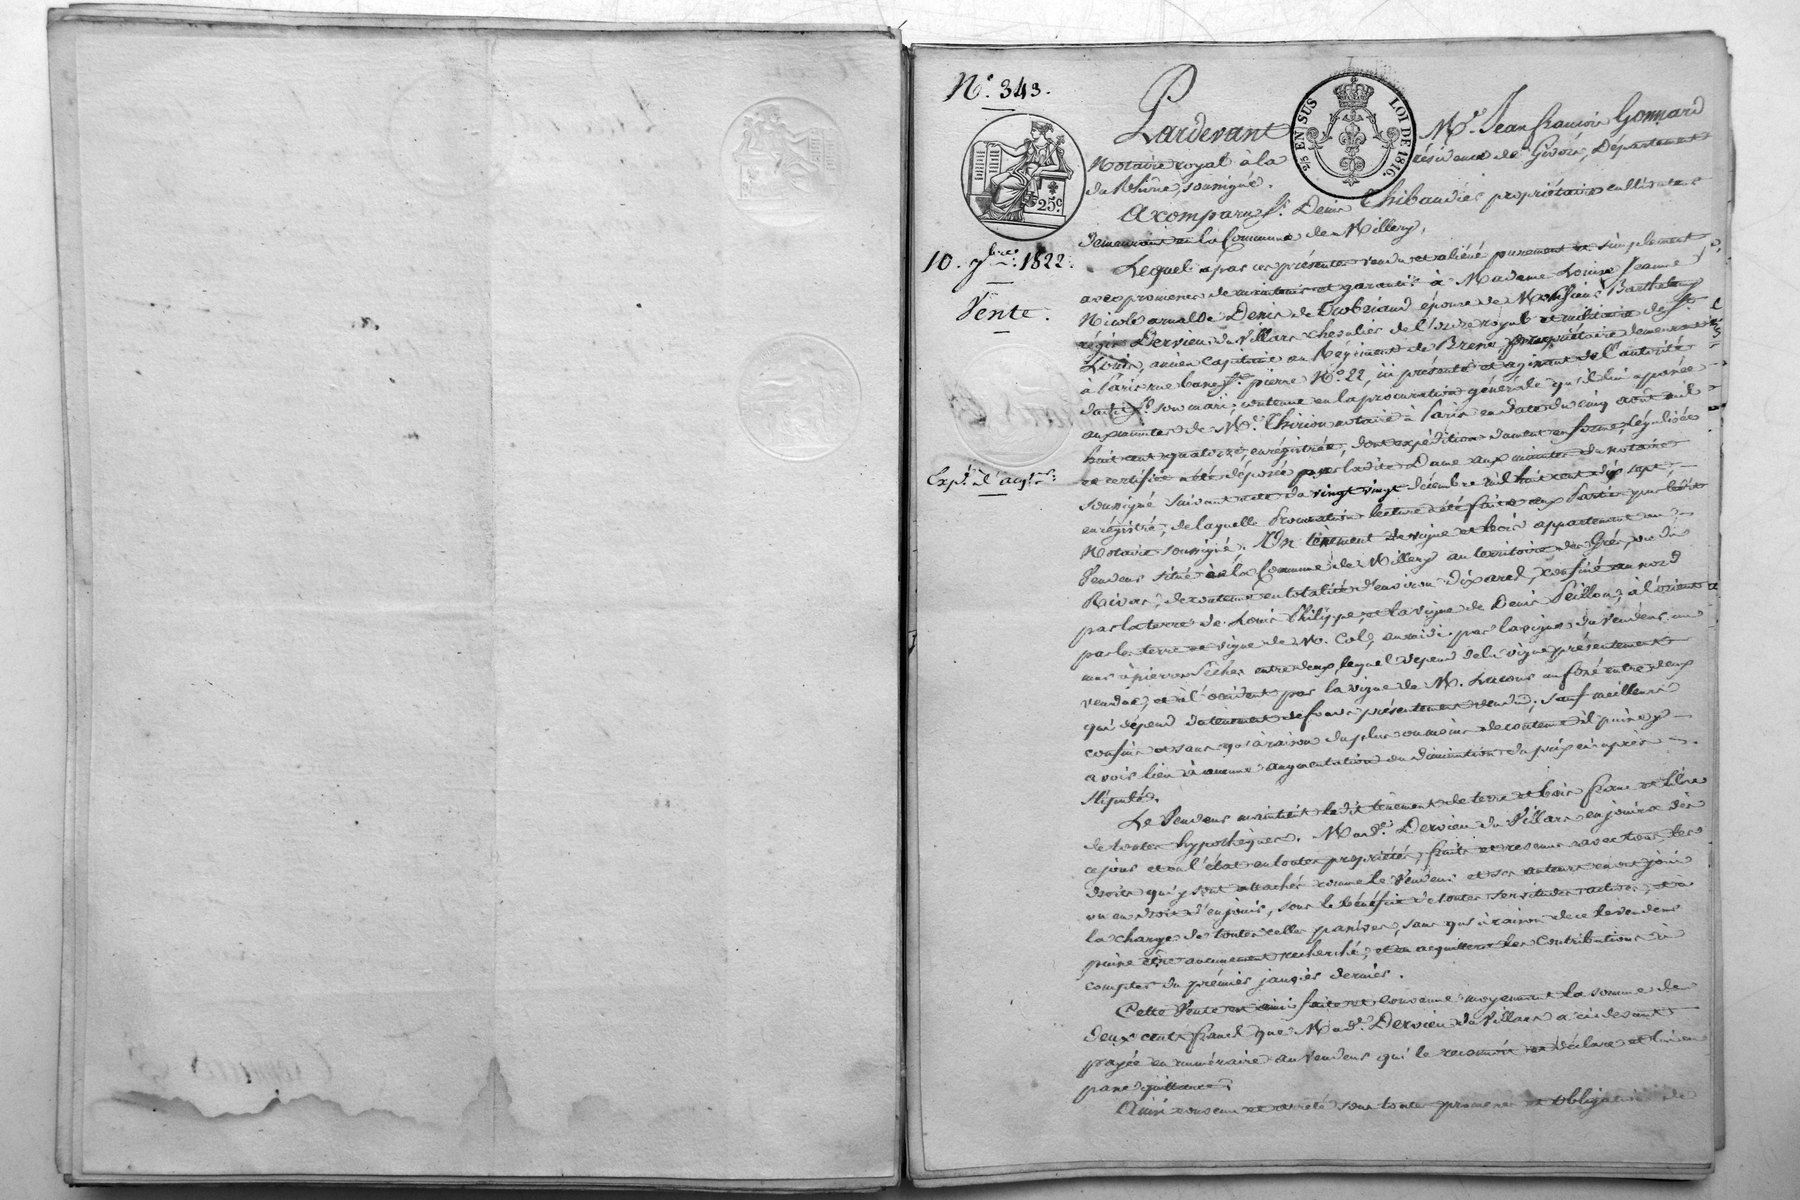 N.° 343.
2/5 EN SUS LOI DE 1816.
25c
10. 7bre 1822.
Vente.
Expé. d'acqr.
Pardevant Me. Jean francois Gonnard
Notaire royal à la résidence de Givors, Département
du Rhône, soussigné.
A comparu Sr. Denis Thibaudier propriétaire cultivateur
demeurant en la Commune de Millery,
Lequel a par ces présentes vendu et aliéné purement et simplement
avec promesse de maintenir et garantir à Madame Louise Jeanne
Nicole Denis de Trobriand épouse de Monsieur Barthelemy
régis Dervieu du Villars chevalier de l'ordre royal et militaire de St.
Louis, ancien Capitaine au Régiment de propriétaire demeurant
à Paris rue St. pierre No. 22, ici présente et agissant de l'autorité
dudit Sr. son mari, contenue en la procuration générale qu'il lui a passée
aux minutes de Me. Thirion notaire à Paris en date du cinq aout mil
huit cent quatorze, enrégistrée, dont expédition dument en forme, légalisée
et certifiée a été déposée par ladite Dame aux minutes du notaire
soussigné suivant acte du vingt vingt décembre mil huit cent dix sept,
enrégistré, de laquelle Procuration lecture a été faite aux Parties par ledit
Notaire soussigné. Un tènement de vigne et bois appartenant au
Vendeur situé en la Commune de Millery au territoire du Grés, ou du
Rivos, de contenue en totalité d'environ dix ares, confiné au nord
par la terre de Louis Philippe, et la vigne de Denis Peillon, à l'orient
par la terre et vigne de M. Col, au midi par la vigne du Vendeur un
mur à pierres sèches entre deux, lequel dépend de la vigne présentement
vendue, et à l'occident par la vigne de M. un fossé entre deux
qui dépend du tènement de fonds présentement vendu, sauf meilleurs
confins et sans qu'à raison du plus ou moins de contenue il puisse y
avoir lieu à aucune augmentation ou diminution du prix ci après
stipulé.
Le Vendeur maintient ledit tènement de terre et bois franc et libre
de toutes hypothèques. Made. Dervieu du Villars en jouira dès
ce jour et en l'état en toutes propriétés, fruits et revenus avec tous les
droits qui y sont attachés comme le Vendeur et ses auteurs en ont joui
ou eu droit d'en jouir, sous le bénéfice de toutes servitudes actives, et à
la charge de toutes celles passives, sans qu'à raison de ce le vendeur
puisse être aucunement recherché, et en acquittera les Contributions à
compter du prémier janvier dernier.
Cette Vente est ainsi faite et convenue moyennant la somme de
deux cents francs que Made. Dervieu du Villars a ci devant
payée en numéraire au vendeur qui le reconnoit et déclare et lui en
passe quittance.
Ainsi convenu et arrêté sous toutes promesses et obligations de